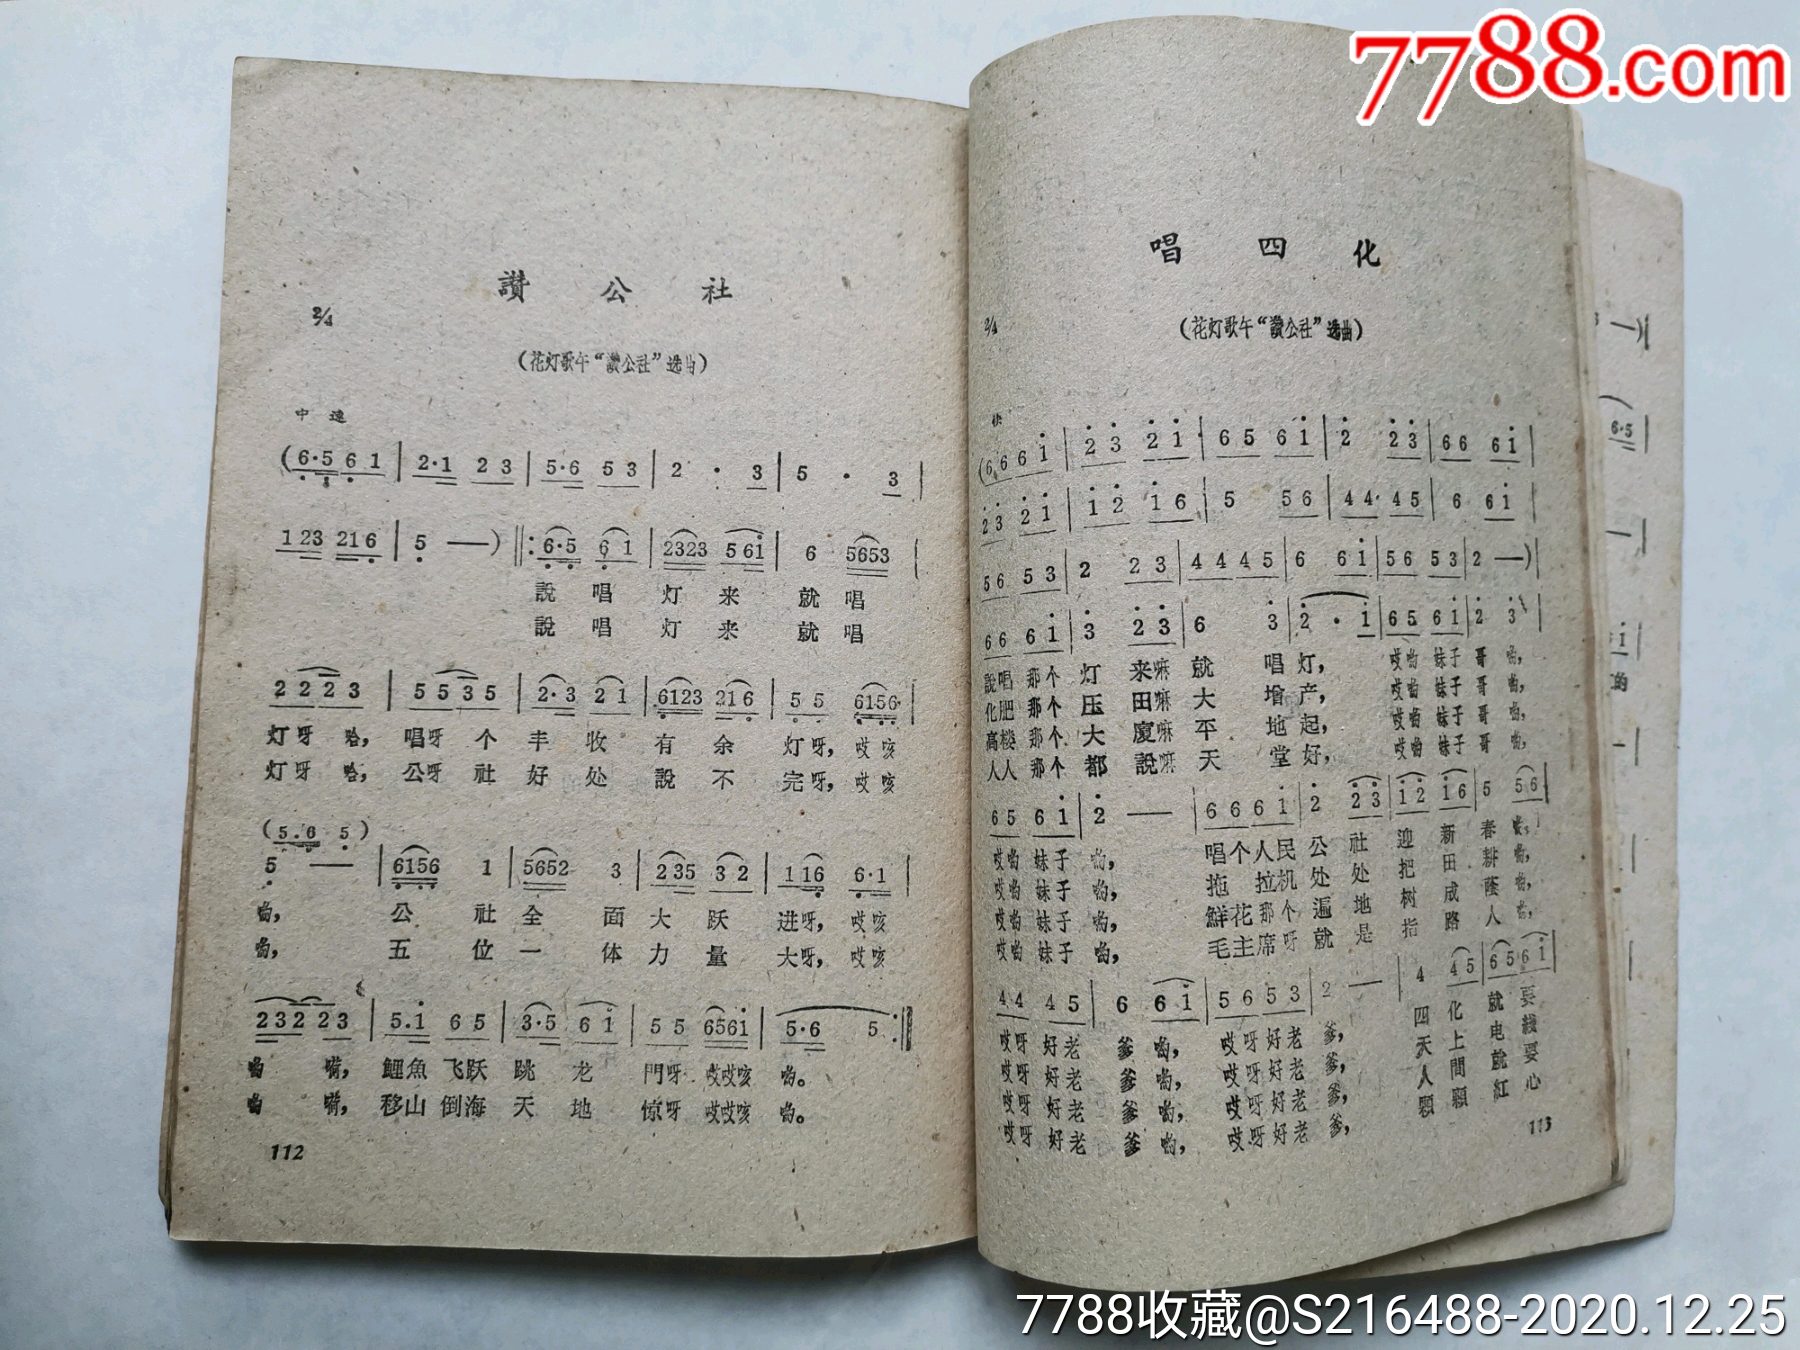 7788.com
讚 公 社
2/4
(花灯歌午“讚公社”选曲)
中 速
(6·5 6 1 | 2·1 2 3 | 5·6 5 3 | 2 · 3 | 5 · 3 |
1 23 21 6 | 5 —) ‖: 6·5 6 1 | 2323 5 61 | 6 5653 |
說 唱 灯 来 就 唱
說 唱 灯 来 就 唱
2 2 2 3 | 5 5 3 5 | 2·3 2 1 | 6123 21 6 | 5 5 6156 |
灯呀 哈, 唱呀 个 丰 收 有 余 灯呀, 哎咳
灯呀 哈, 公呀 社 好 处 說 不 完呀, 哎咳
(5.6 5)
5 — | 6156 1 | 5652 3 | 2 35 3 2 | 1 16 6·1 |
喲, 公 社 全 面 大 跃 进呀, 哎咳
喲, 五 位 一 体 力 量 大呀, 哎咳
232 23 | 5.1 6 5 | 3·5 6 1 | 5 5 6561 | 5·6 5 :‖
喲 嗬, 鯉魚 飞跃 跳 龙 門呀 哎哎咳 喲。
喲 嗬, 移山 倒海 天 地 惊呀 哎哎咳 喲。
112
唱 四 化
2/4
(花灯歌午“讚公社”选曲)
快
(6 6 6 1 | 2 3 2 1 | 6 5 6 1 | 2 2 3 | 6 6 6 1 |
2 3 2 1 | 1 2 1 6 | 5 5 6 | 4 4 4 5 | 6 6 1 |
5 6 5 3 | 2 2 3 | 4 4 4 5 | 6 6 1 | 5 6 5 3 | 2 —) |
6 6 6 1 | 3 2 3 | 6 3 | 2 · 1 | 6 5 6 1 | 2 3 |
說唱 那个 灯 来嘛 就 唱 灯, 哎喲 妹子 哥 喲,
化肥 那个 压 田嘛 大 增 产, 哎喲 妹子 哥 喲,
高楼 那个 大 廈嘛 平 地 起, 哎喲 妹子 哥 喲,
人人 那个 都 說嘛 天 堂 好, 哎喲 妹子 哥 喲,
6 5 6 1 | 2 — | 6 6 6 1 | 2 2 3 | 1 2 1 6 | 5 5 6 |
哎喲 妹子 喲, 唱个人民 公 社 迎 新 春 喲,
哎喲 妹子 喲, 拖 拉机 处 处 把 田 耕 喲,
哎喲 妹子 喲, 鮮花那个 遍 地 树 成 蔭 喲,
哎喲 妹子 喲, 毛主席呀 就 是 指 路 人 喲,
4 4 4 5 | 6 6 1 | 5 6 5 3 | 2 — | 4 4 5 | 6 5 6 1 |
哎呀 好老 爹 喲, 哎呀好老 爹, 四 化 就 要
哎呀 好老 爹 喲, 哎呀好老 爹, 天 上 电 綫
哎呀 好老 爹 喲, 哎呀好老 爹, 人 間 就 要
哎呀 好老 爹 喲, 哎呀好老 爹, 顆 顆 紅 心
113
7788收藏@S216488-2020.12.25